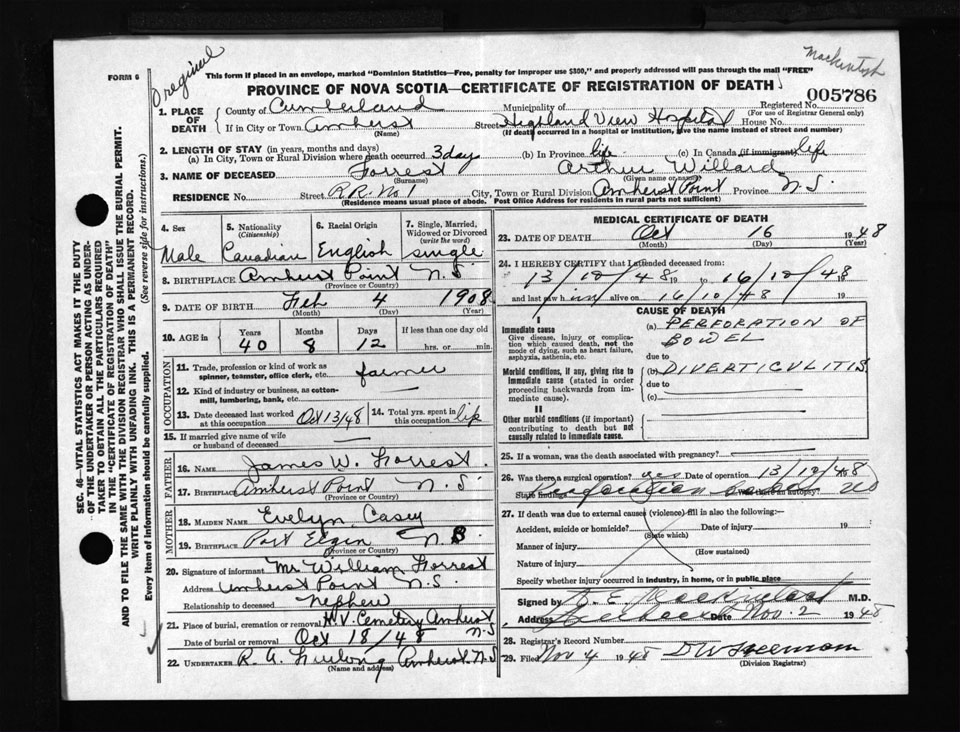 Original
Mackintosh
FORM 6
This form if placed in an envelope, marked "Dominion Statistics—Free, penalty for improper use $300," and properly addressed will pass through the mail "FREE"
PROVINCE OF NOVA SCOTIA—CERTIFICATE OF REGISTRATION OF DEATH
005786
1. PLACE OF DEATH
County of Cumberland Municipality of Registered No.
(For use of Registrar General only)
If in City or Town Amherst Street Highland View Hospital House No.
(Name) (If death occurred in a hospital or institution, give the name instead of street and number)
2. LENGTH OF STAY (in years, months and days)
(a) In City, Town or Rural Division where death occurred 3 day (b) In Province life (c) In Canada (if immigrant) life
3. NAME OF DECEASED Forrest Arthur Willard
(Surname) (Given name or names)
RESIDENCE No. Street R.R. No 1 City, Town or Rural Division Amherst Point Province N.S.
(Residence means usual place of abode. Post Office Address for residents in rural parts not sufficient)
4. Sex
Male
5. Nationality
(Citizenship)
Canadian
6. Racial Origin
English
7. Single, Married, Widowed or Divorced
(write the word)
single
8. BIRTHPLACE Amherst Point N.S.
(Province or Country)
9. DATE OF BIRTH Feb 4 1908
(Month) (Day) (Year)
10. AGE in Years Months Days If less than one day old
40 8 12 hrs. or min.
OCCUPATION
11. Trade, profession or kind of work as
spinner, teamster, office clerk, etc. farmer
12. Kind of industry or business, as cotton-
mill, lumbering, bank, etc.
13. Date deceased last worked
at this occupation Oct 13/48
14. Total yrs. spent in
this occupation life
15. If married give name of wife
or husband of deceased
FATHER
16. NAME James W. Forrest
17. BIRTHPLACE Amherst Point N.S.
(Province or Country)
MOTHER
18. MAIDEN NAME Evelyn Casey
19. BIRTHPLACE Port Elgin N.B
(Province or Country)
20. Signature of informant Mr William Forrest
Address Amherst Point N.S.
Relationship to deceased nephew
21. Place of burial, cremation or removal H.V. Cemetery Amherst
N.S
Date of burial or removal Oct 18/48
22. UNDERTAKER R. A. Furlong Amherst N.S
(Name and address)
MEDICAL CERTIFICATE OF DEATH
23. DATE OF DEATH Oct 16 1948
(Month) (Day) (Year)
24. I HEREBY CERTIFY that I attended deceased from:
13/10/48 19 to 16/10/48 19
and last saw him alive on 16/10/48 19
CAUSE OF DEATH
I
Immediate cause
Give disease, injury or complica-
tion which caused death, not the
mode of dying, such as heart failure,
asphyxia, asthenia, etc.
(a) PERFORATION OF
BOWEL
due to
Morbid conditions, if any, giving rise to
immediate cause (stated in order
proceeding backwards from im-
mediate cause).
(b) DIVERTICULITIS
due to
(c)
II
Other morbid conditions (if important)
contributing to death but not
causally related to immediate cause.
25. If a woman, was the death associated with pregnancy?
26. Was there a surgical operation? yes Date of operation 13/10/48
State findings Perforation Was there an autopsy? no
27. If death was due to external causes (violence) fill in also the following:—
Accident, suicide or homicide? Date of injury 19
(State which)
Manner of injury
(How sustained)
Nature of injury
Specify whether injury occurred in industry, in home, or in public place
Signed by R. E. Mackintosh M.D.
Address Date Nov. 2 1948
28. Registrar's Record Number
29. Filed Nov 4 1948 D W Freeman
(Division Registrar)
SEC. 46—VITAL STATISTICS ACT MAKES IT THE DUTY
OF THE UNDERTAKER OR PERSON ACTING AS UNDER-
TAKER TO OBTAIN ALL THE PARTICULARS REQUIRED
IN THE "CERTIFICATE OF REGISTRATION OF DEATH"
AND TO FILE THE SAME WITH THE DIVISION REGISTRAR WHO SHALL ISSUE THE BURIAL PERMIT.
WRITE PLAINLY WITH UNFADING INK. THIS IS A PERMANENT RECORD.
Every item of information should be carefully supplied. (See reverse side for instructions.)